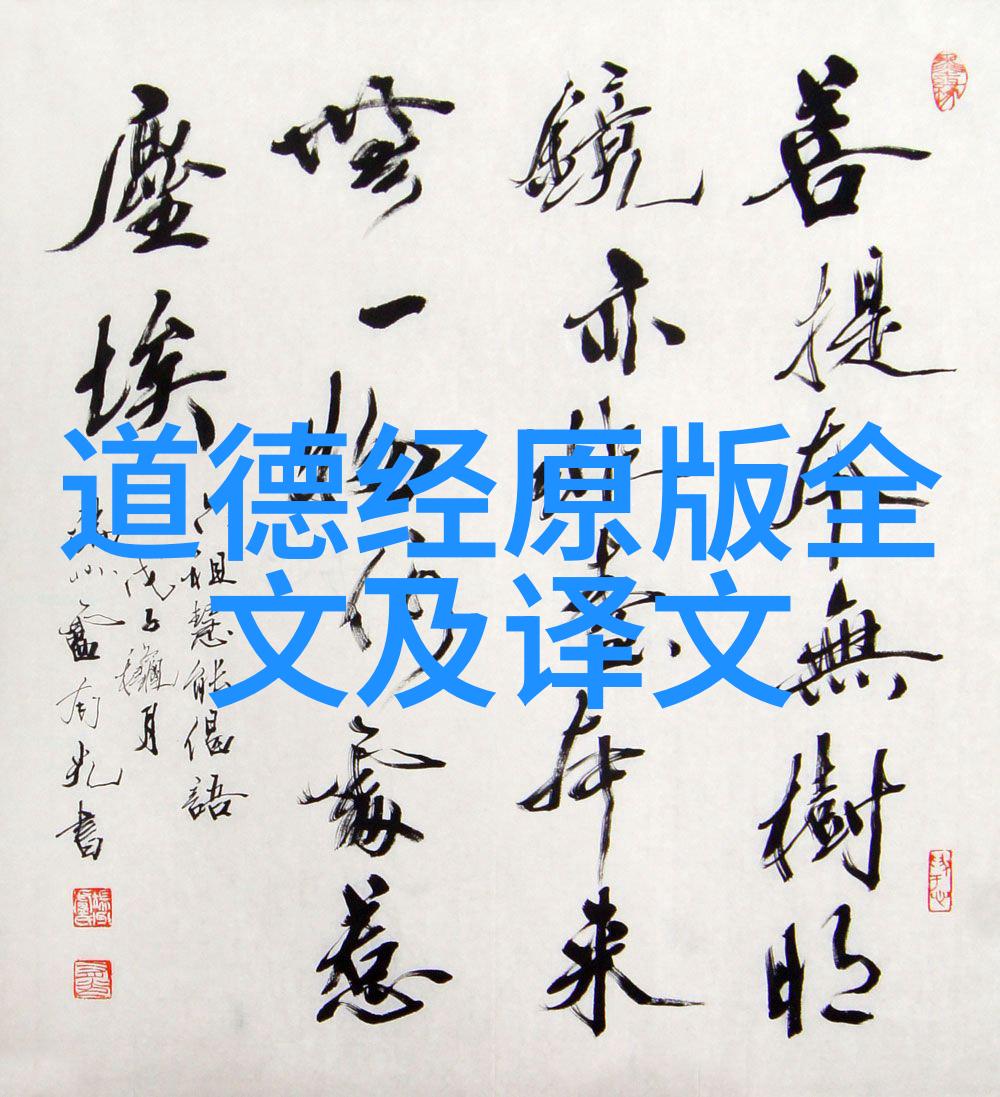 道德经原版全
文及译文
菩提本無樹明
鏡亦非臺本来
無一物何處惹
塵埃
六祖慧能偈語
戊子穐月
書